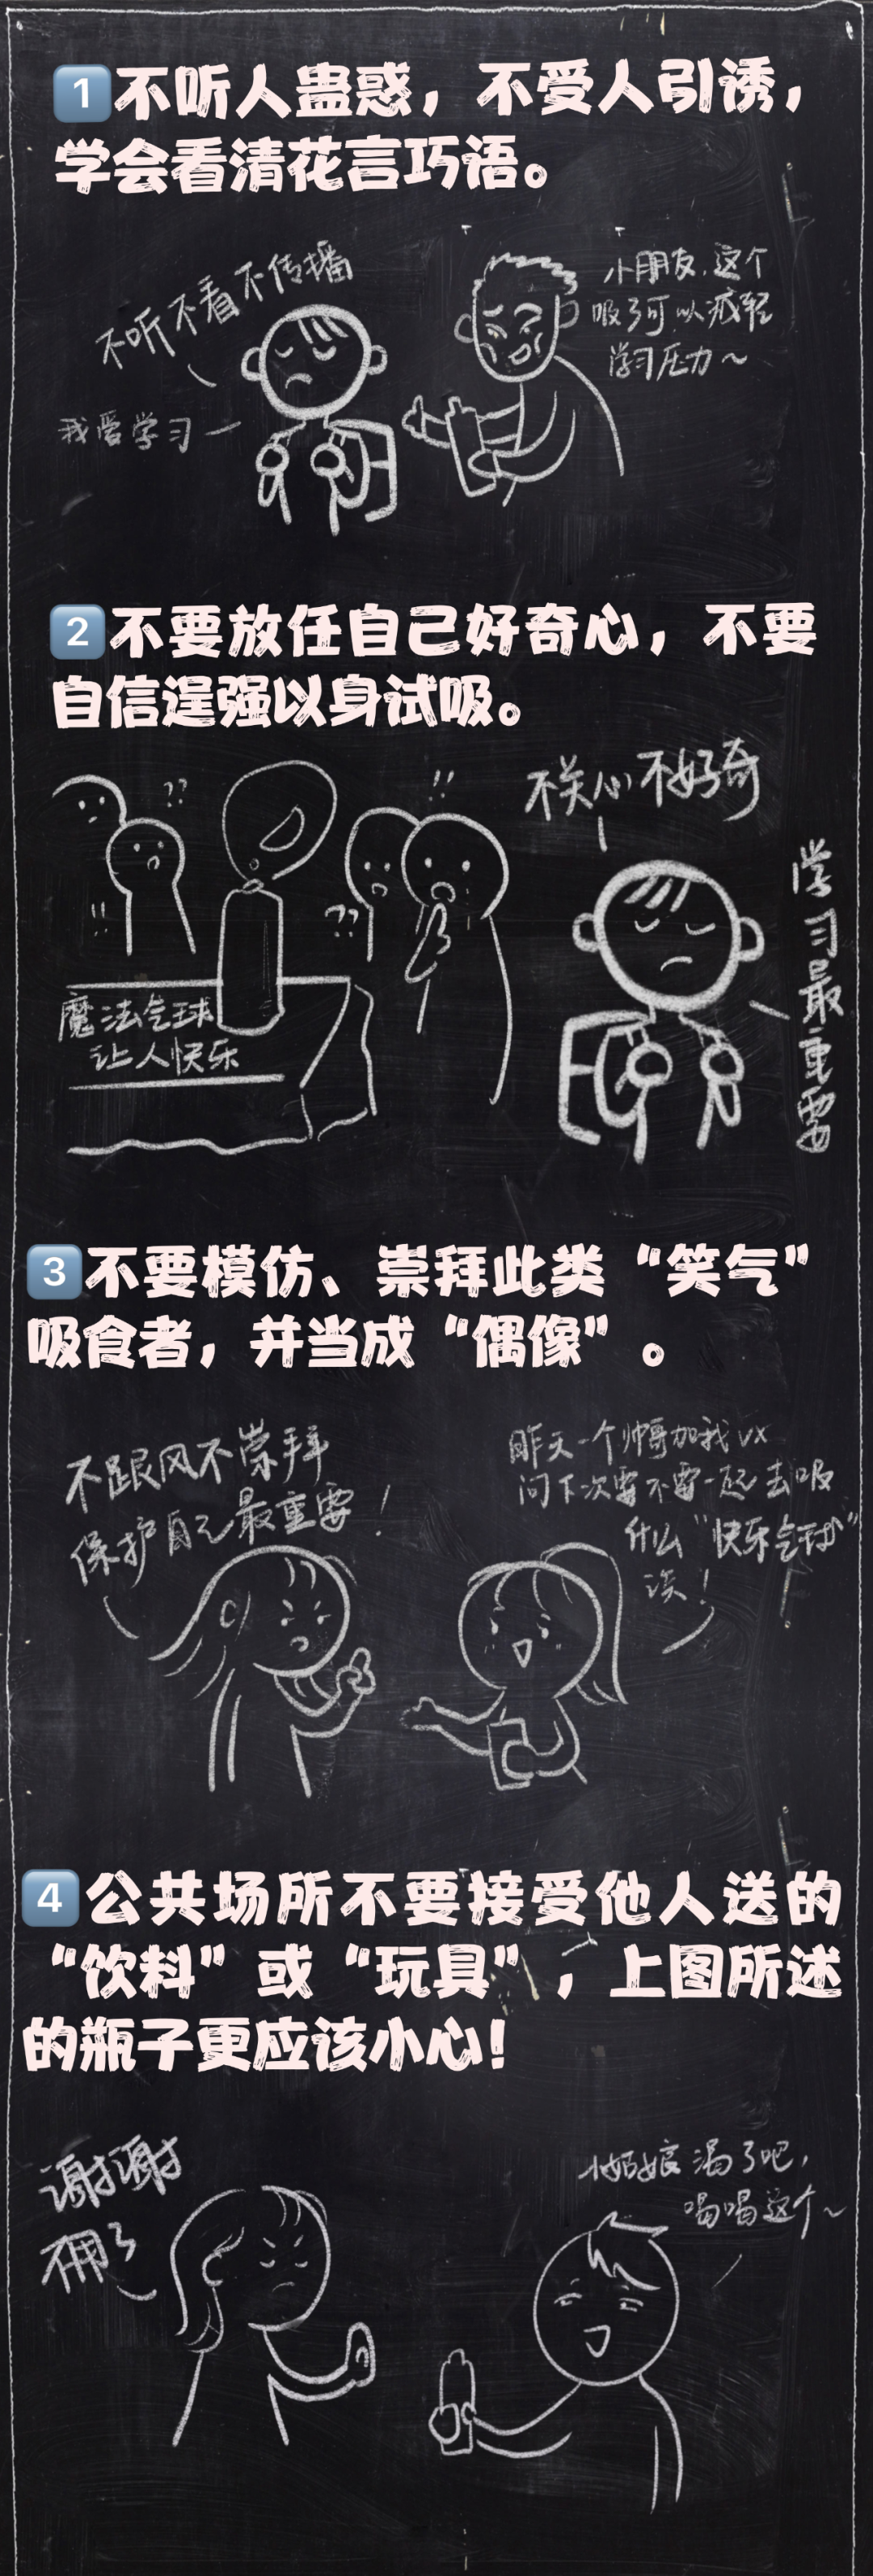 1 不听人蛊惑，不受人引诱，
学会看清花言巧语。
不听不看不传播
我爱学习
小朋友，这个
吸了可以减轻
学习压力～
2 不要放任自己好奇心，不要
自信逞强以身试吸。
??
!!
!!
??
魔法气球
让人快乐
不关心不好奇
学习最重要
3 不要模仿、崇拜此类“笑气”
吸食者，并当成“偶像”。
不跟风不崇拜
保护自己最重要！
昨天一个帅哥加我vx
问下次要不要一起去吸
什么“快乐气球”
诶！
4 公共场所不要接受他人送的
“饮料”或“玩具”，上图所述
的瓶子更应该小心！
谢谢
不用了
小姑娘渴了吧，
喝喝这个～